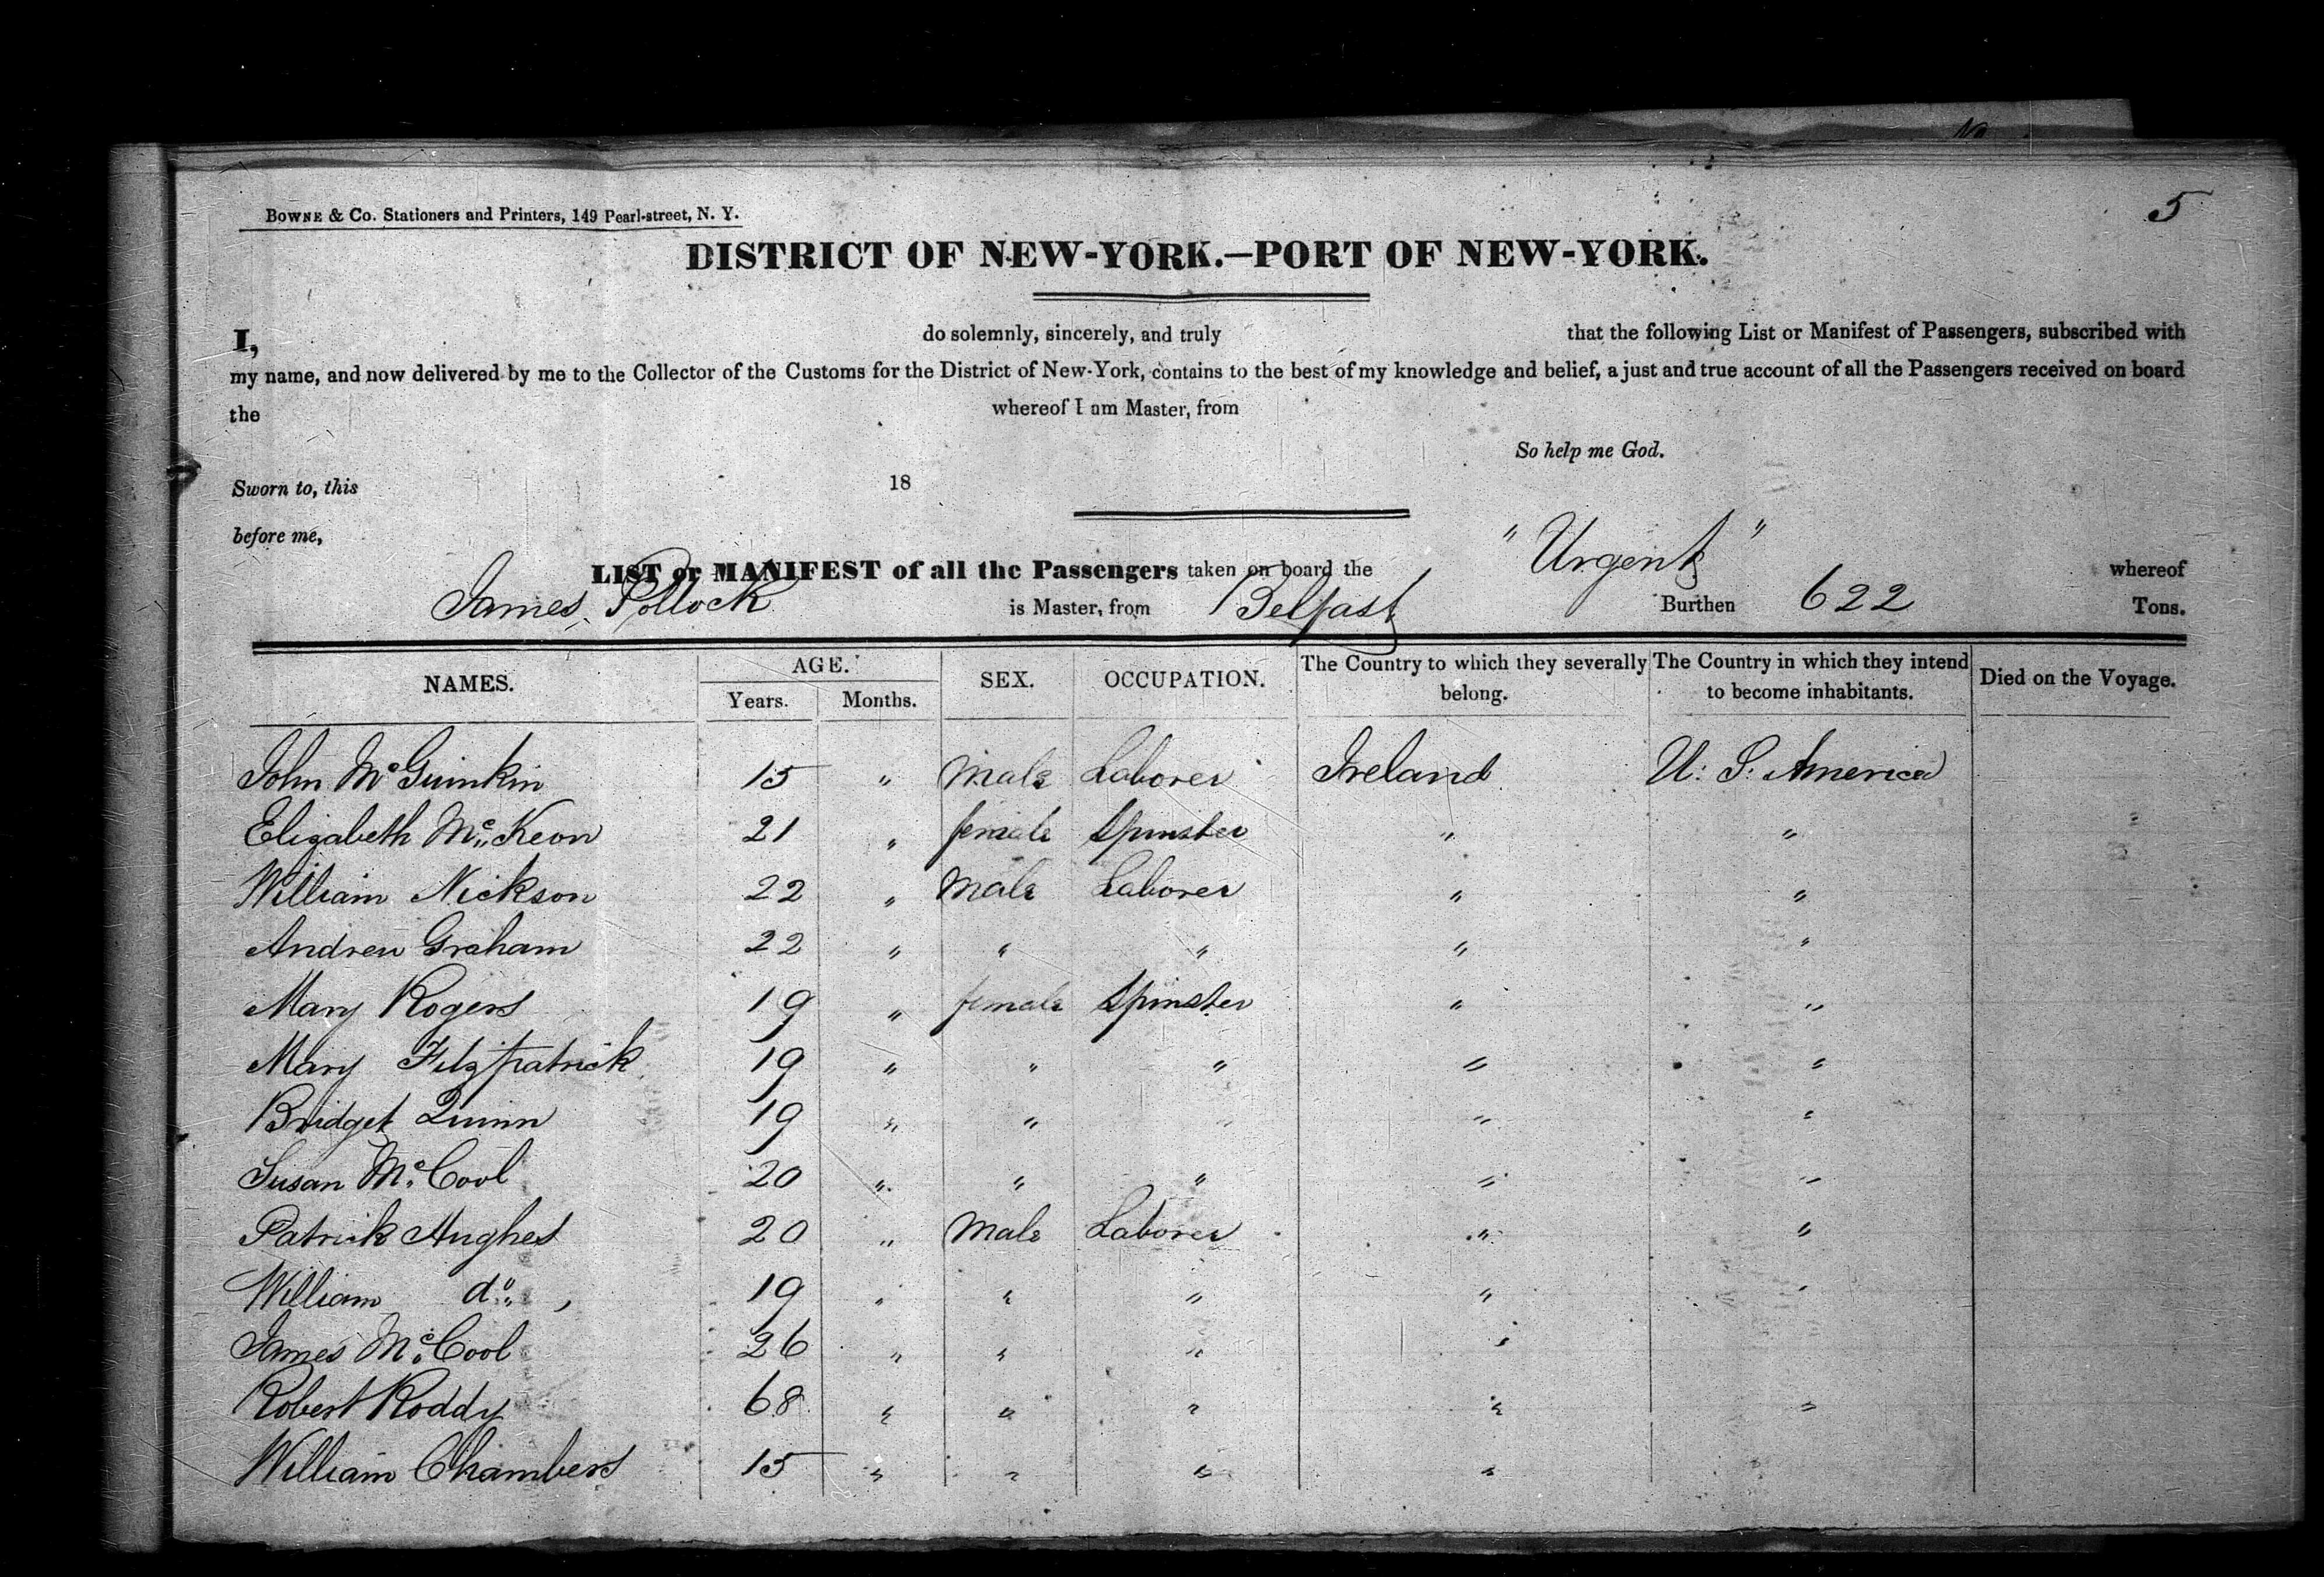 No
5
BOWNE & CO. Stationers and Printers, 149 Pearl-street, N. Y.
DISTRICT OF NEW-YORK.—PORT OF NEW-YORK.
I, do solemnly, sincerely, and truly that the following List or Manifest of Passengers, subscribed with
my name, and now delivered by me to the Collector of the Customs for the District of New-York, contains to the best of my knowledge and belief, a just and true account of all the Passengers received on board
the whereof I am Master, from
So help me God.
Sworn to, this 18
before me,
LIST or MANIFEST of all the Passengers taken on board the "Urgent" whereof
James Pollock is Master, from Belfast Burthen 622 Tons.
NAMES. AGE. Years. Months. SEX. OCCUPATION. The Country to which they severally belong. The Country in which they intend to become inhabitants. Died on the Voyage.
John Mc Guinkin 15 " Male Laborer Ireland U. S. America
Elizabeth Mc Keon 21 " female Spinster " "
William Nickson 22 " Male Laborer " "
Andrew Graham 22 " " " " "
Mary Rogers 19 " female Spinster " "
Mary Fitzpatrick 19 " " " " "
Bridget Quinn 19 " " " " "
Susan Mc Cool 20 " " " " "
Patrick Hughes 20 " Male Laborer " "
William do 19 " " " " "
James Mc Cool 26 " " " "
Robert Roddy 68 " " " " "
William Chambers 15 " " " "